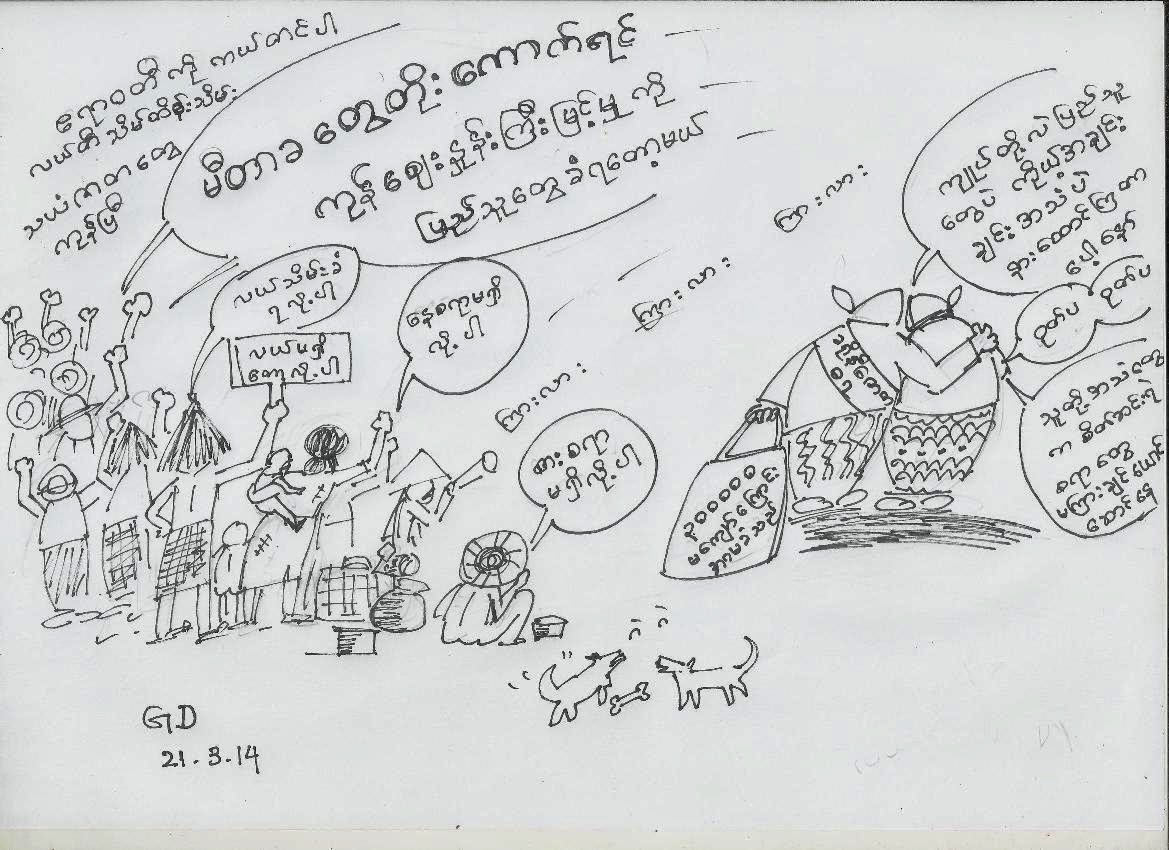 ဧရာဝတီ ကို ကယ်တင်ပါ
လယ်တီ သိမ်ထိန်းသိမ်း
သယံဇာတ တွေ
ကုန်ပြီ
မီတာခ တွေတိုး ကောက်ရင်
ကုန် ဈေးနှုန်းကြီးမြင့်မှု ကို
ပြည်သူတွေ ခံရတော့မယ်
လယ်သိမ်းခံ
ရလို့ပါ
လယ်မရှိ
တော့လို့ပါ
နေစရာမရှိ
လို့ပါ
စားစရာ
မရှိလို့ပါ
ကြားလား
ကြားလား
ကြားလား
ကျုပ်တို့လဲ ပြည်သူ
တွေပဲ ကိုယ့်အချင်း
ချင်း အသံပဲ
နားထောင်ကြတာ
ပေါ့နော်
ဟုတ်ပ ဟုတ်ပ
သူတို့အသံတွေ
က စိတ်
စရာတွေ
မကြားချင်ယောင်
ဆောင်နေ
မကျော်ကြောင်း
GD
21.3.14